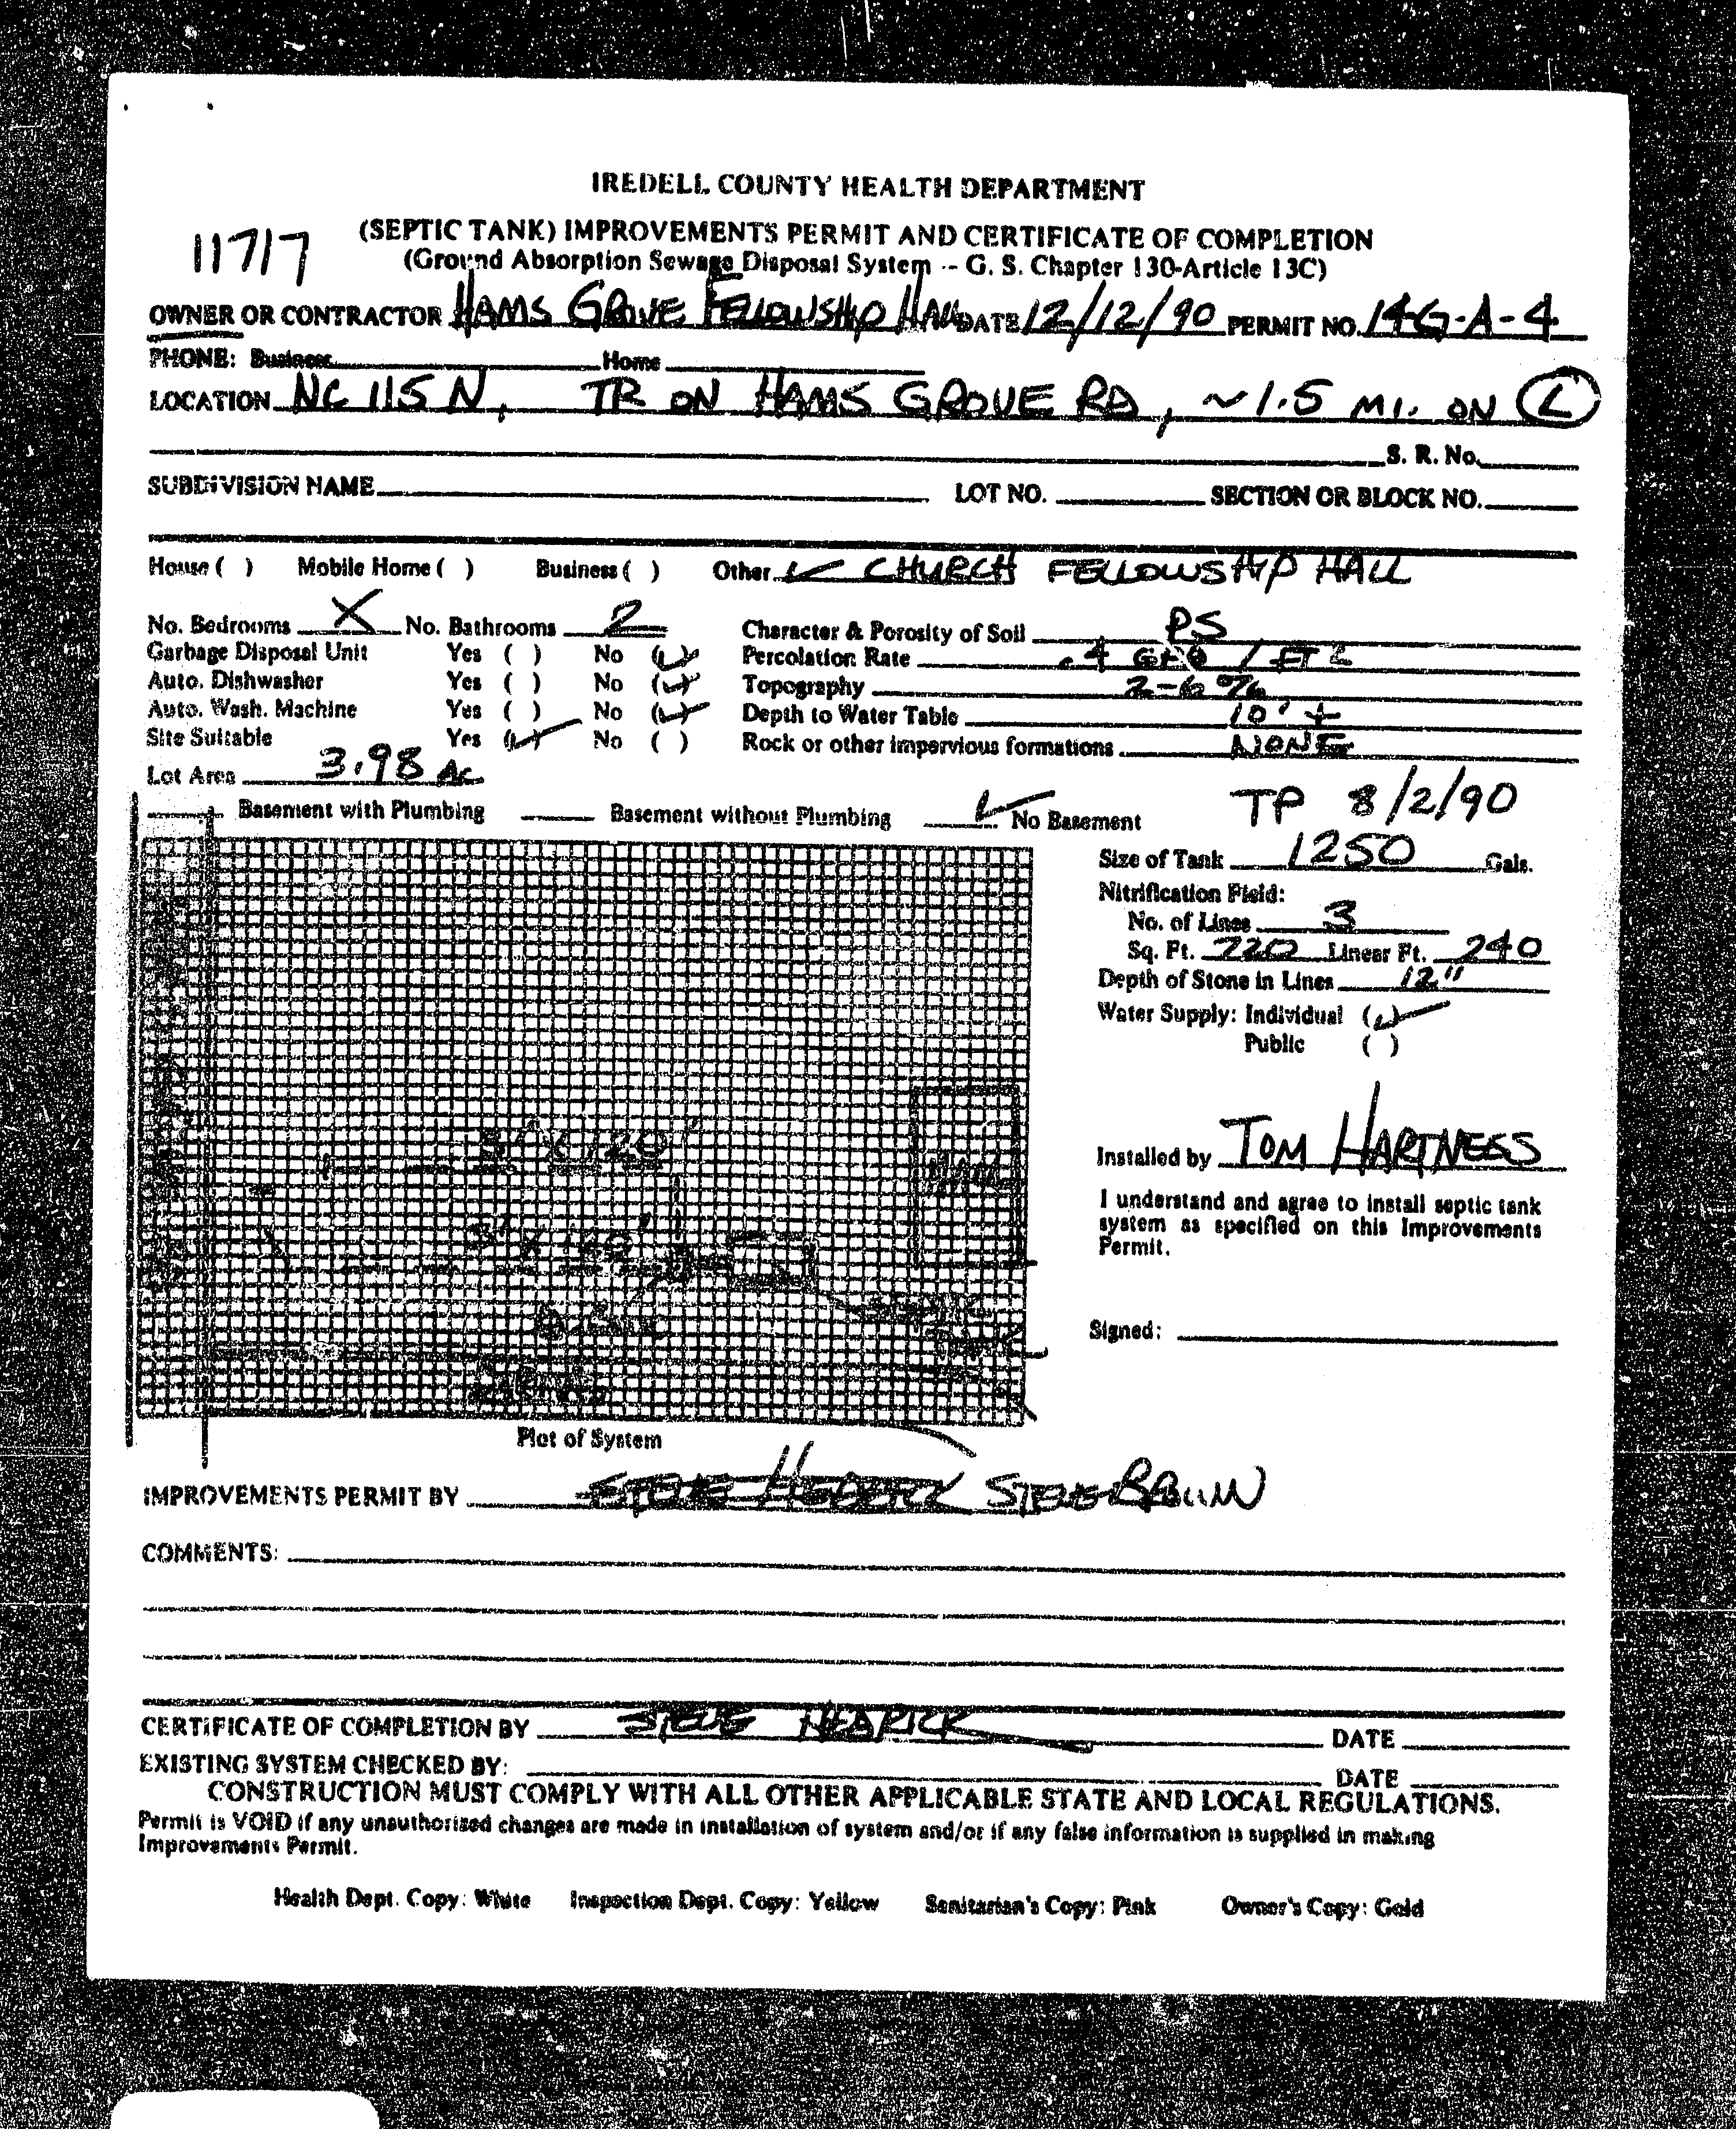 IREDELL COUNTY HEALTH DEPARTMENT
11717
(SEPTIC TANK) IMPROVEMENTS PERMIT AND CERTIFICATE OF COMPLETION
(Ground Absorption Sewage Disposal System -- G. S. Chapter 130-Article 13C)
OWNER OR CONTRACTOR HAMS GROVE FELLOWSHIP HALL DATE 12/12/90 PERMIT NO. 14G-A-4
PHONE: Business Home
LOCATION NC 115 N, TR ON HAMS GROVE RD, ~1.5 MI. ON L
S. R. No.
SUBDIVISION NAME LOT NO. SECTION OR BLOCK NO.
House ( ) Mobile Home ( ) Business ( ) Other ✓ CHURCH FELLOWSHIP HALL
No. Bedrooms X No. Bathrooms 2 Character & Porosity of Soil PS
Garbage Disposal Unit Yes ( ) No (✓) Percolation Rate .4 GPD / FT2
Auto. Dishwasher Yes ( ) No (✓) Topography 2-6%
Auto. Wash. Machine Yes ( ) No (✓) Depth to Water Table 10' +
Site Suitable Yes (✓) No ( ) Rock or other impervious formations NONE
Lot Area 3.98 AC
Basement with Plumbing Basement without Plumbing ✓ No Basement TP 8/2/90
Size of Tank 1250 Gals.
Nitrification Field:
No. of Lines 3
Sq. Ft. 720 Linear Ft. 240
Depth of Stone in Lines 12"
Water Supply: Individual (✓)
Public ( )
3' X 120'
HALL
Installed by TOM HARTNESS
I understand and agree to install septic tank
system as specified on this Improvements
Permit.
Signed:
Plot of System
IMPROVEMENTS PERMIT BY STEVE HEDRICK STEVE BROWN
COMMENTS:
CERTIFICATE OF COMPLETION BY STEVE HEDRICK DATE
EXISTING SYSTEM CHECKED BY: DATE
CONSTRUCTION MUST COMPLY WITH ALL OTHER APPLICABLE STATE AND LOCAL REGULATIONS.
Permit is VOID if any unauthorized changes are made in installation of system and/or if any false information is supplied in making
Improvements Permit.
Health Dept. Copy: White Inspection Dept. Copy: Yellow Sanitarian's Copy: Pink Owner's Copy: Gold